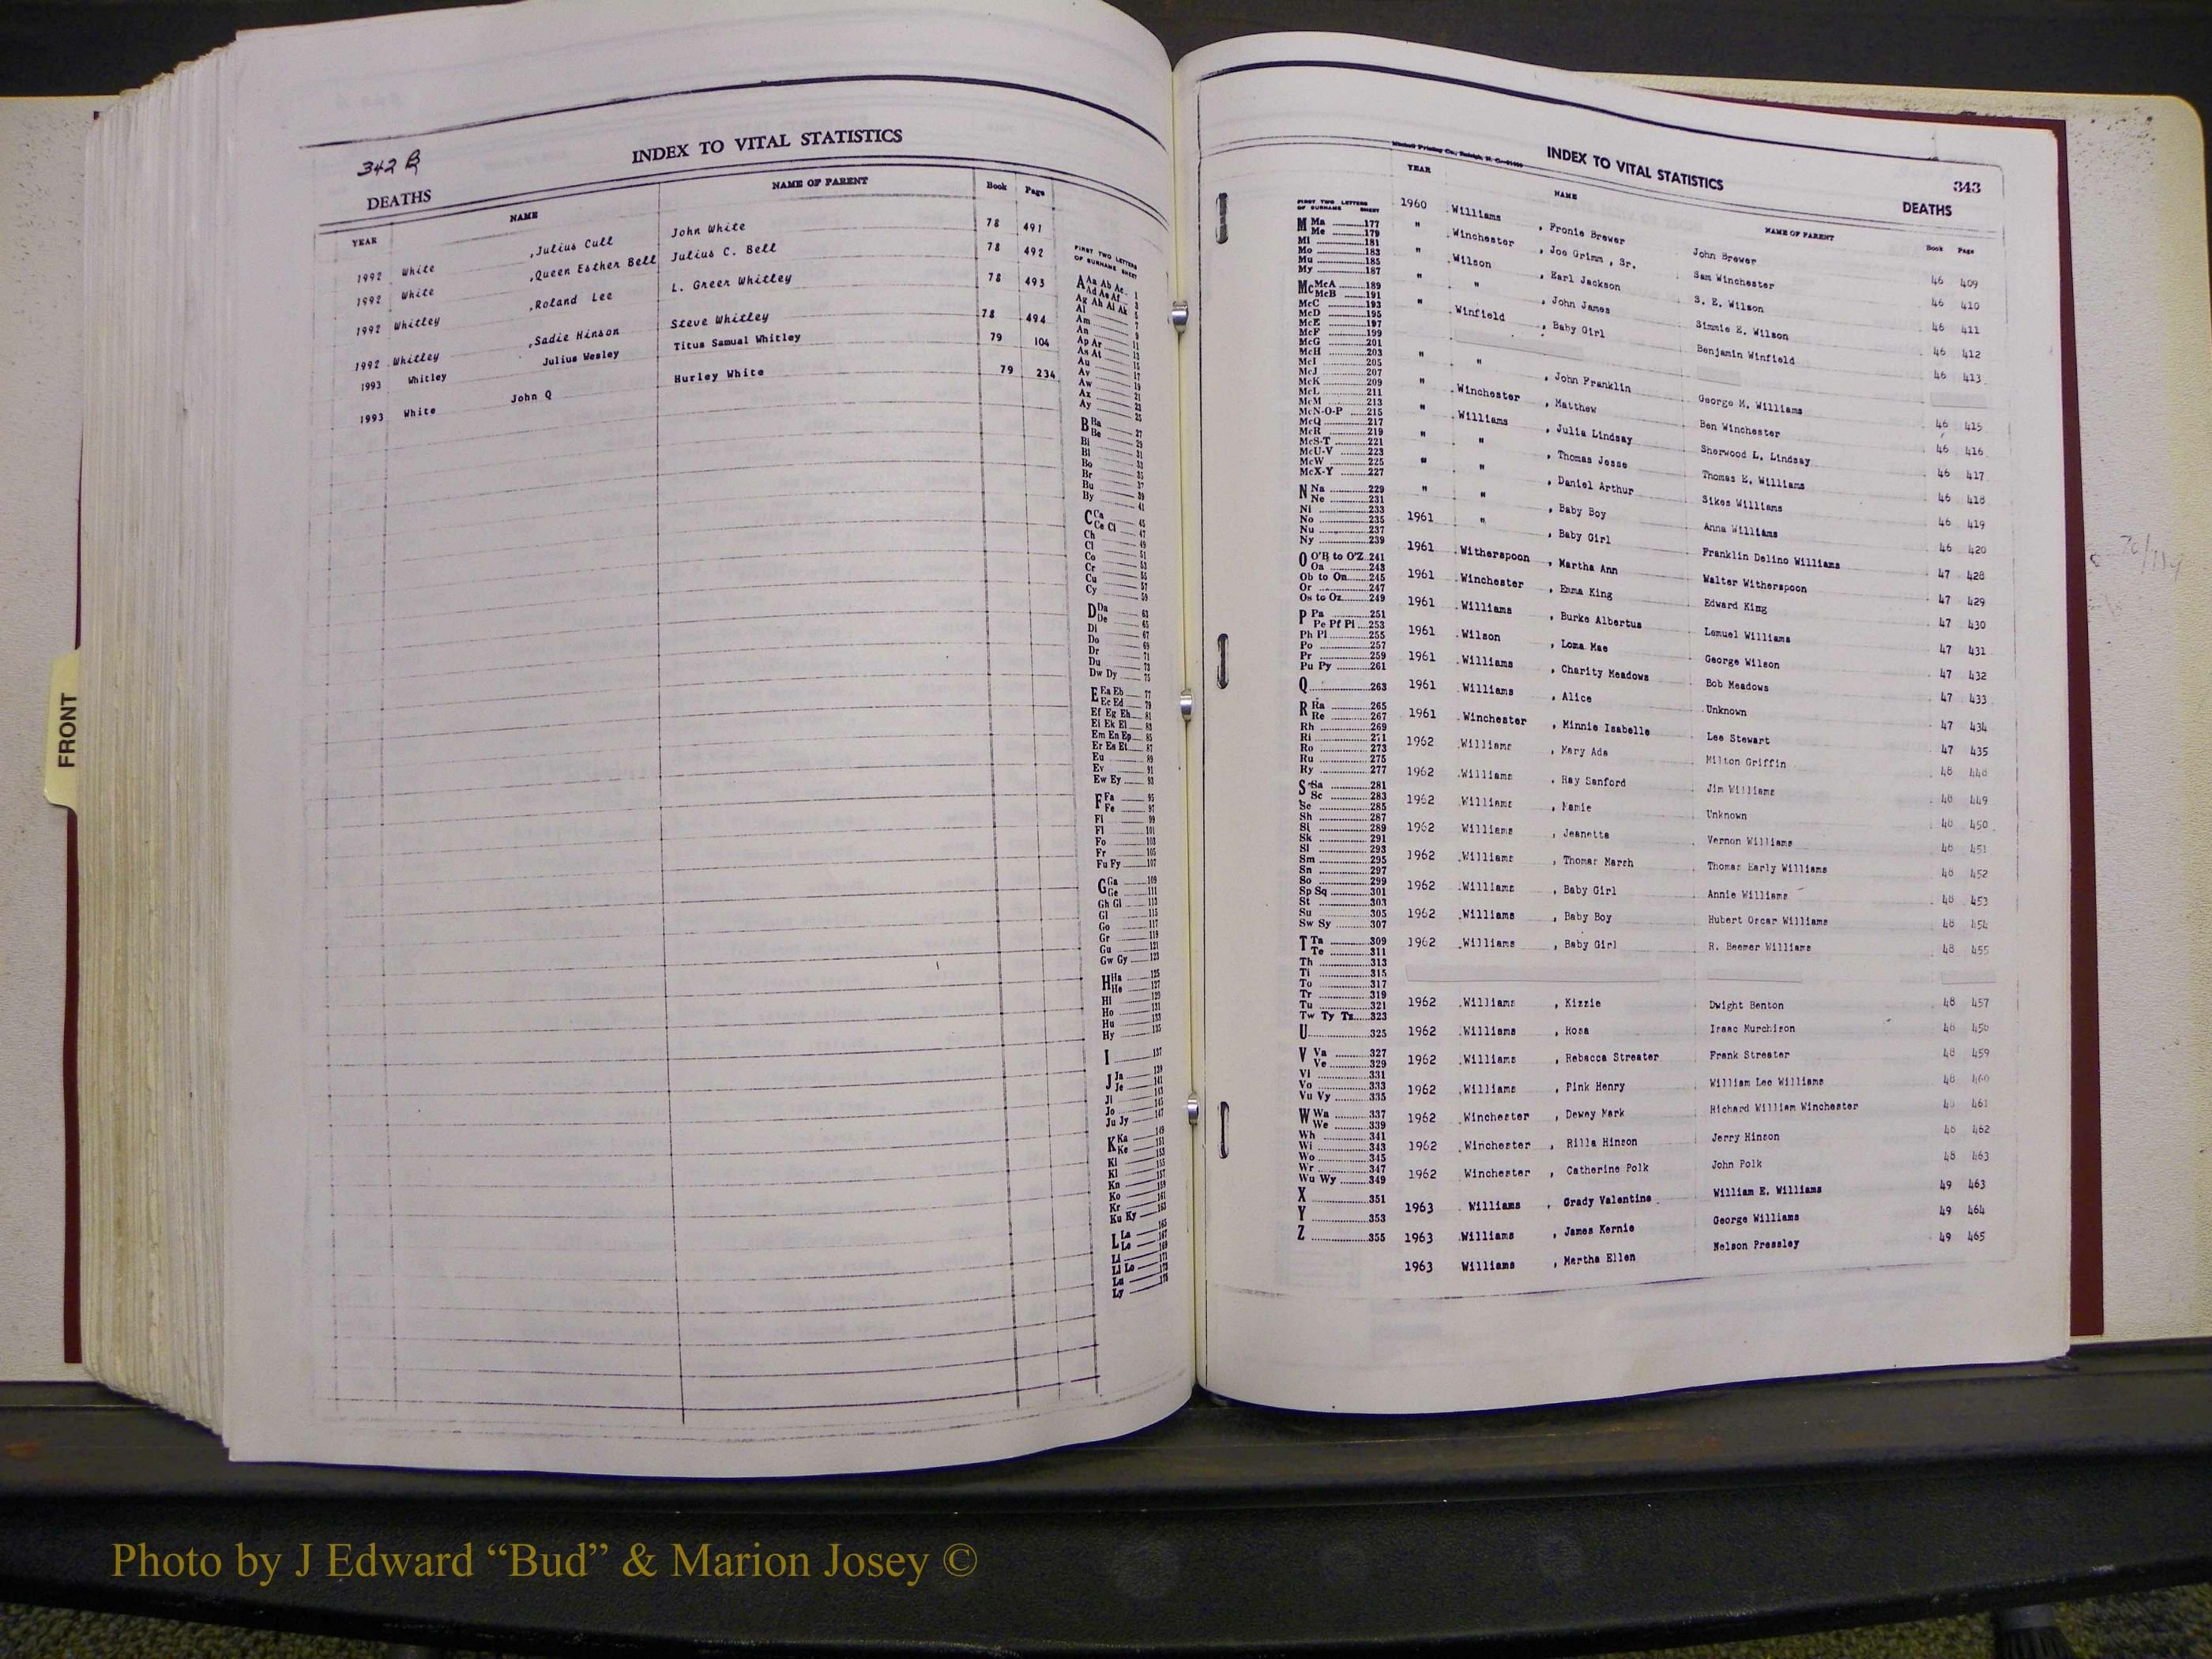 342 B
INDEX TO VITAL STATISTICS
DEATHS
YEAR NAME NAME OF PARENT Book Page
1992 White ,Julius Cull John White 78 491
1992 White ,Queen Esther Bell Julius C. Bell 78 492
1992 Whitley ,Roland Lee L. Green Whitley 78 493
1992 Whitley ,Sadie Hinson Steve Whitley 78 494
1993 Whitley Julius Wesley Titus Samual Whitley 79 104
1993 White John Q Hurley White 79 234
FIRST TWO LETTERS
OF SURNAME SHEET
A Aa Ab Ac 1
Ad Ae Af 3
Ag Ah Ai Ak 5
Al 7
Am 9
An
Ap Ar 11
As At 13
Au 15
Av 17
Aw 19
Ax 21
Ay
B Ba 27
Be 29
Bi 31
Bl 33
Bo 35
Br 37
Bu 39
By 41
C Ca 45
Ce Ci 47
Ch 49
Cl 51
Co 53
Cr 55
Cu 57
Cy 59
D Da 63
De 65
Di 67
Do 69
Dr 71
Du 73
Dw Dy 75
E Ea Eb 77
Ec Ed 79
Ef Eg Eh 81
Ei Ek El 83
Em En Ep 85
Er Es Et 87
Eu 89
Ev 91
Ew Ey 93
F Fa 95
Fe 97
Fi 99
Fl 101
Fo 103
Fr 105
Fu Fy 107
G Ga 109
Ge 111
Gh Gi 113
Gl 115
Go 117
Gr 119
Gu 121
Gw Gy 123
H Ha 125
He 127
Hi 129
Ho 131
Hu 133
Hy 135
I 137
J Ja 139
Je 141
Ji 143
Jo 145
Ju Jy 147
K Ka 149
Ke 151
Ki 153
Kl 155
Kn 157
Ko 159
Kr 161
Ku Ky 163
L La 165
Le 167
Li 169
Ll Lo 171
Lu 173
Ly 175
FRONT
Mitchell Printing Co., Raleigh, N. C.
INDEX TO VITAL STATISTICS
343
DEATHS
YEAR NAME NAME OF PARENT Book Page
1960 Williams , Fronie Brewer John Brewer 46 409
" Winchester , Joe Grimm , Sr. Sam Winchester 46 410
" Wilson , Earl Jackson S. E. Wilson 46 411
" " , John James Simmie E. Wilson 46 412
" Winfield , Baby Girl Benjamin Winfield 46 413
" " , John Franklin George M. Williams 46 415
" Winchester , Matthew Ben Winchester 46 416
" Williams , Julia Lindsay Sherwood L. Lindsay 46 417
" " , Thomas Jesse Thomas E. Williams 46 418
" " , Daniel Arthur Sikes Williams 46 419
" " , Baby Boy Anna Williams 46 420
1961 " , Baby Girl Franklin Delino Williams 47 428
1961 Witherspoon , Martha Ann Walter Witherspoon 47 429
1961 Winchester , Emma King Edward King 47 430
1961 Williams , Burke Albertus Lemuel Williams 47 431
1961 Wilson , Loma Mae George Wilson 47 432
1961 Williams , Charity Meadows Bob Meadows 47 433
1961 Williams , Alice Unknown 47 434
1961 Winchester , Minnie Isabelle Lee Stewart 47 435
1962 Williams , Mary Ada Milton Griffin 48 448
1962 Williams , Ray Sanford Jim Williams 48 449
1962 Williams , Mamie Unknown 48 450
1962 Williams , Jeanette Vernon Williams 48 451
1962 Williams , Thomas Marsh Thomas Early Williams 48 452
1962 Williams , Baby Girl Annie Williams 48 453
1962 Williams , Baby Boy Hubert Oscar Williams 48 454
1962 Williams , Baby Girl R. Beemer Williams 48 455
1962 Williams , Kizzie Dwight Benton 48 457
1962 Williams , Rosa Isaac Murchison 48 458
1962 Williams , Rebecca Streater Frank Streater 48 459
1962 Williams , Pink Henry William Lee Williams 48 460
1962 Winchester , Dewey Mark Richard William Winchester 48 461
1962 Winchester , Rilla Hinson Jerry Hinson 48 462
1962 Winchester , Catherine Polk John Polk 48 463
1963 Williams , Grady Valentine William E. Williams 49 463
1963 Williams , James Kernie George Williams 49 464
1963 Williams , Martha Ellen Nelson Pressley 49 465
FIRST TWO LETTERS
OF SURNAME SHEET
M Ma 177
Me 179
Mi 181
Mo 183
Mu 185
My 187
Mc McA 189
McB 191
McC 193
McD 195
McE 197
McF 199
McG 201
McH 203
McI 205
McJ 207
McK 209
McL 211
McM 213
McN-O-P 215
McQ 217
McR 219
McS-T 221
McU-V 223
McW 225
McX-Y 227
N Na 229
Ne 231
Ni 233
No 235
Nu 237
Ny 239
O O'B to O'Z 241
Oa 243
Ob to On 245
Or 247
Os to Oz 249
P Pa 251
Pe Pf Pi 253
Ph Pl 255
Po 257
Pr 259
Pu Py 261
Q 263
R Ra 265
Re 267
Rh 269
Ri 271
Ro 273
Ru 275
Ry 277
S Sa 281
Sc 283
Se 285
Sh 287
Si 289
Sk 291
Sl 293
Sm 295
Sn 297
So 299
Sp Sq 301
St 303
Su 305
Sw Sy 307
T Ta 309
Te 311
Th 313
Ti 315
To 317
Tr 319
Tu 321
Tw Ty Tz 323
U 325
V Va 327
Ve 329
Vi 331
Vo 333
Vu Vy 335
W Wa 337
We 339
Wh 341
Wi 343
Wo 345
Wr 347
Wu Wy 349
X 351
Y 353
Z 355
Photo by J Edward “Bud” & Marion Josey ©